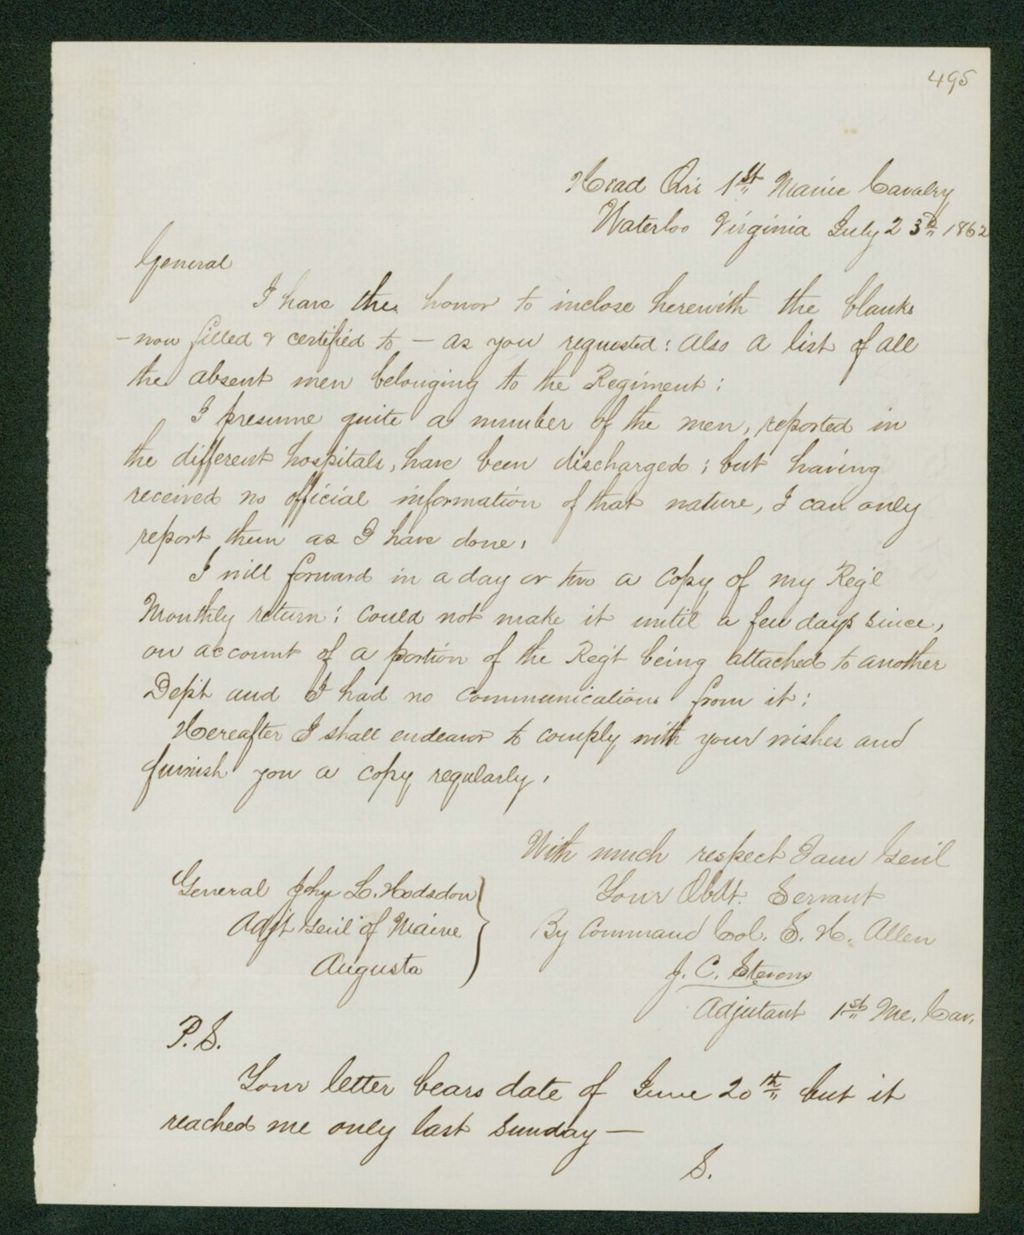 495
Head Qrs 1st Maine Cavalry
Waterloo Virginia July 23d 1862
General
I have the honor to inclose herewith the blanks
- now filled & certified to - as you requested: also a list of all
the absent men belonging to the Regiment:
I presume quite a number of the men, reported in
the different hospitals, have been discharged; but having
received no official information of that nature, I can only
report them as I have done.
I will forward in a day or two a copy of my Reg'l
Monthly return: could not make it until a few days since,
on account of a portion of the Reg't being attached to another
Dep't and I had no communications from it:
Hereafter I shall endeavor to comply with your wishes and
furnish you a copy regularly.
With much respect I am Gen'l
Your Obdt. Servant
By Command Col. S. H. Allen
J. C. Stevens
Adjutant 1st Me. Cav.
General Jhn L. Hodsdon
Adjt Gen'l of Maine
Augusta
P.S.
Your letter bears date of June 20th but it
reached me only last Sunday —
S.